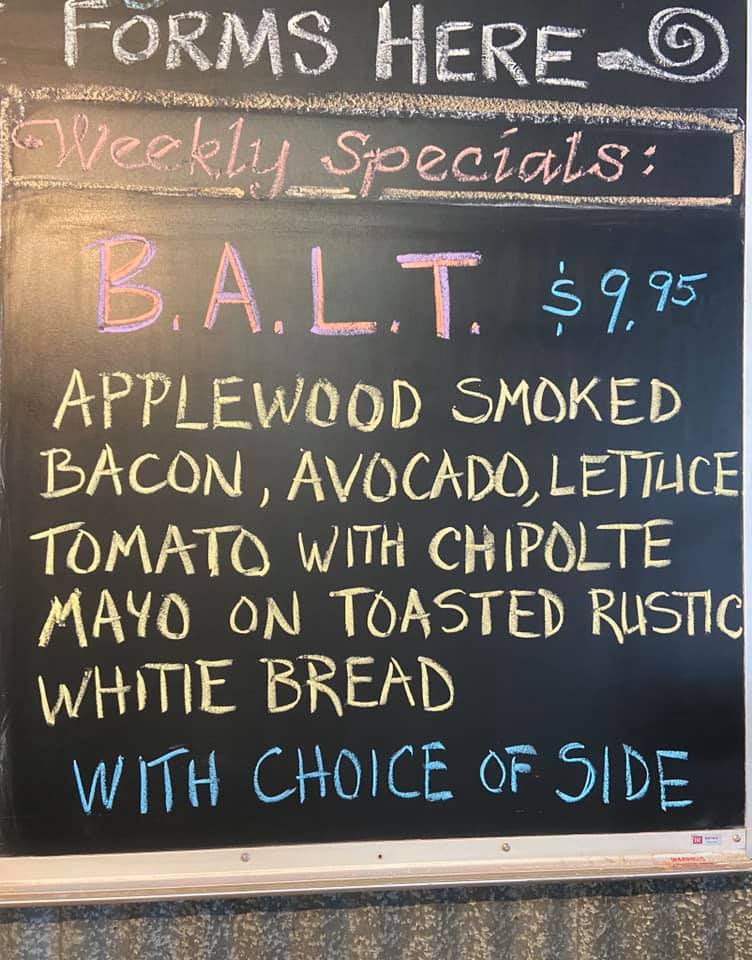 FORMS HERE
Weekly Specials:
B.A.L.T. $9.95
APPLEWOOD SMOKED
BACON, AVOCADO, LETTUCE
TOMATO WITH CHIPOLTE
MAYO ON TOASTED RUSTIC
WHITIE BREAD
WITH CHOICE OF SIDE